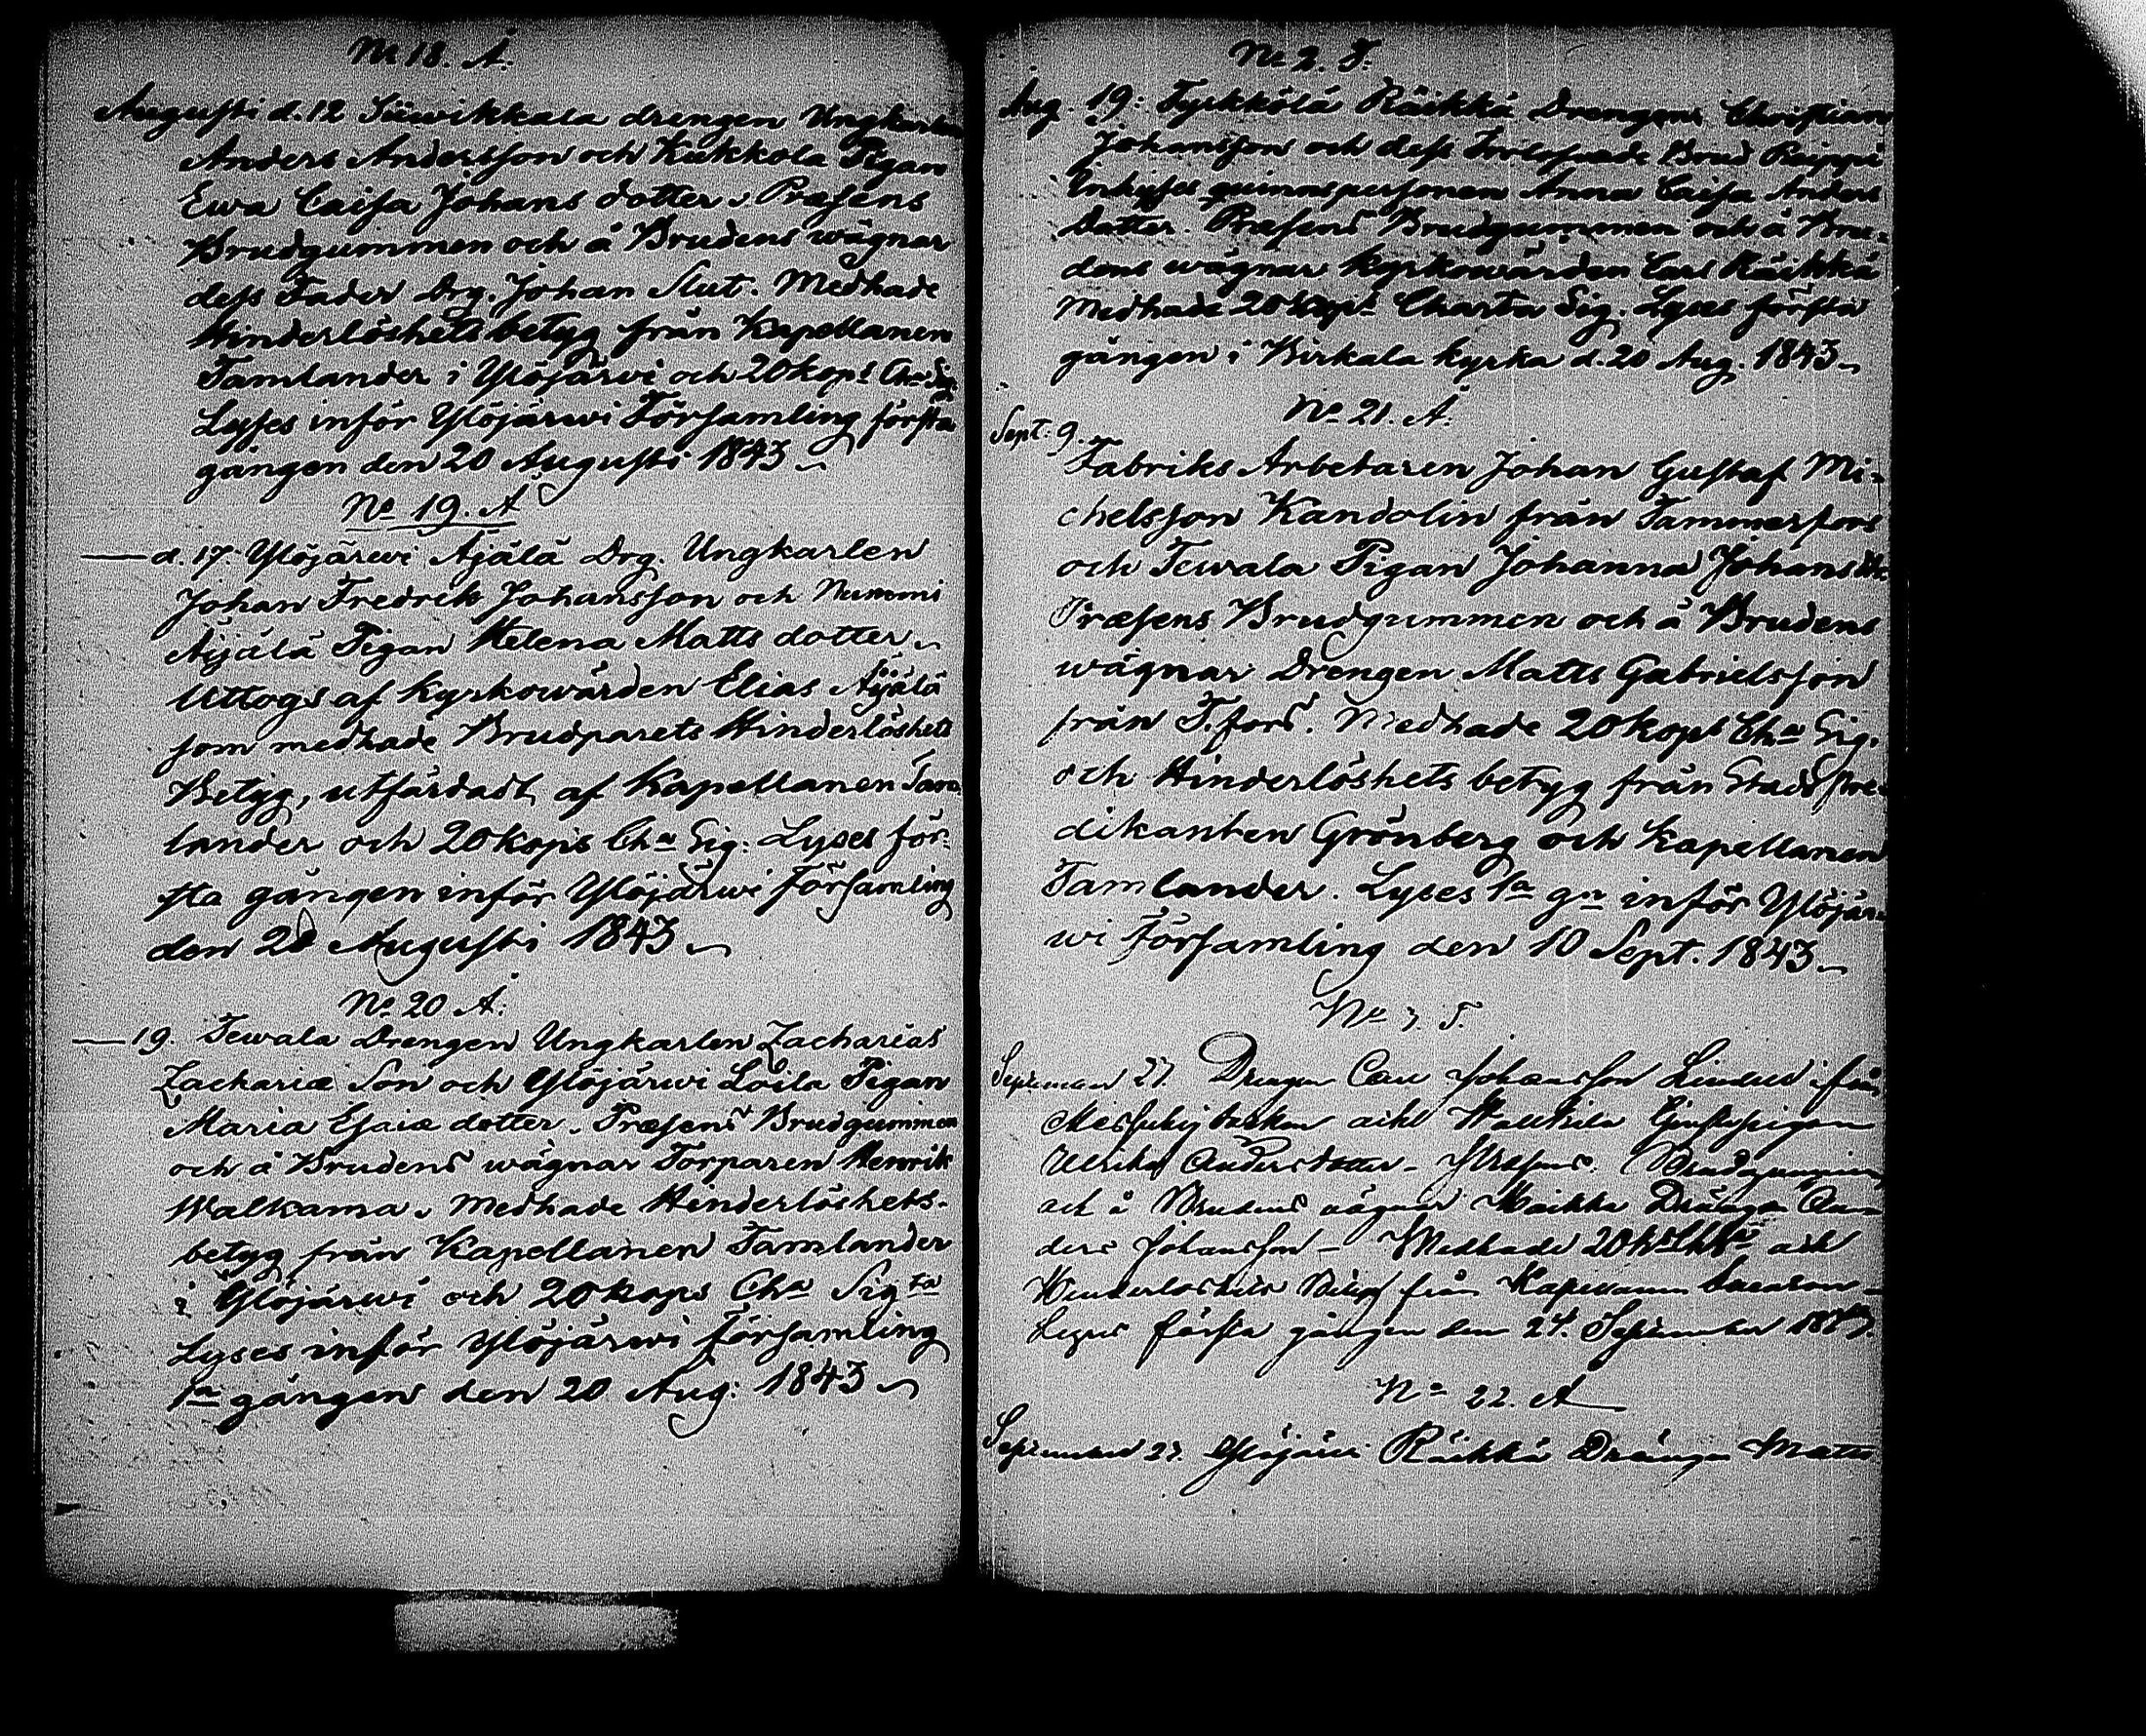 No 18. A.
Augusti d. 12 Siiwikkala drengen Ungkarlen
Anders Andersson och Kukkola Pigan
Ewa Caisa Johans dotter. Præsens
Brudgummen och å Brudens wägnar
dess Fader Drg. Johan Slut. Medhade
Hinderlöshets betyg från Kapellanen
Tamlander i Ylöjärwi och 20 kops Cha Sig.
Lyses inför Ylöjärwi Församling första
gången den 20 Augusti 1843
No 19. A
d. 17. Ylöjärwi Äjälä Drg. Ungkarlen
Johan Fredrik Johansson och Nummi
Äijälä Pigan Helena Matts dotter
Uttogs af kyrkowärden Elias Äijälä
som medhade Brudparets Hinderlöshets
Betyg, utfärdadt af Kapellanen Tam
lander och 20 kops Cha Sig: Lyses för-
sta gången inför Ylöjärwi Församling
den 20 Augusti 1843
No 20 A.
19. Tewala Drengen Ungkarlen Zacharias
Zachariæ Son och Ylöjärwi Loila Pigan
Maria Esaiæ dotter. Præsens Brudgummen
och å Brudens wägnar Torparen Henrik
Walkama. Medhade Hinderlöshets-
betyg från Kapellanen Tamlander
i Ylöjärwi och 20 kops Cha Sigta
Lyses inför Ylöjärwi Församling
1a gången den 20 Aug: 1843
No 2. T.
Aug. 19: Tyrkkölä Räikkä Drengen Christian
Johansson och dess Trolofwade Brud
Inhyses qwinnspersonen Anna Caisa Anders
Dotter. Præsens Brudgummen och å Bru-
dens wägnar kyrkowärden Carl Räikkä
Medhade 20 kops Charta Sig. Lyses första
gången i Birkala kyrka d. 20 Aug. 1843
No 21. A.
Sept: 9.
Fabriks Arbetaren Johan Gustaf Mi-
chelsson Kandolin från Tammerfors
och Tewala Pigan Johanna Johans dtr
Præsens Brudgummen och å Brudens
wägnar Drengen Matts Gabrielsson
från T.fors. Medhade 20 kops Cha Sig.
och Hinderlöshets betyg från Stads pre-
dikanten Grönberg och Kapellanen
Tamlander. Lyses 1a gn inför Ylöjär-
wi Församling den 10 Sept. 1843
No 3.
September 23. Drengen Johansson från
och
Ulrika Andersdotter - Præsens. Brudgummen
och å Brudens vägnar Drängen An-
ders Johansson - Medhade 20 och
Hinderlöshets Betyg från Kapellanen
Lyses första gången den 24. September 1843.
No 22. A
September 23. Ylöjärvi Räikkä Drängen Matts